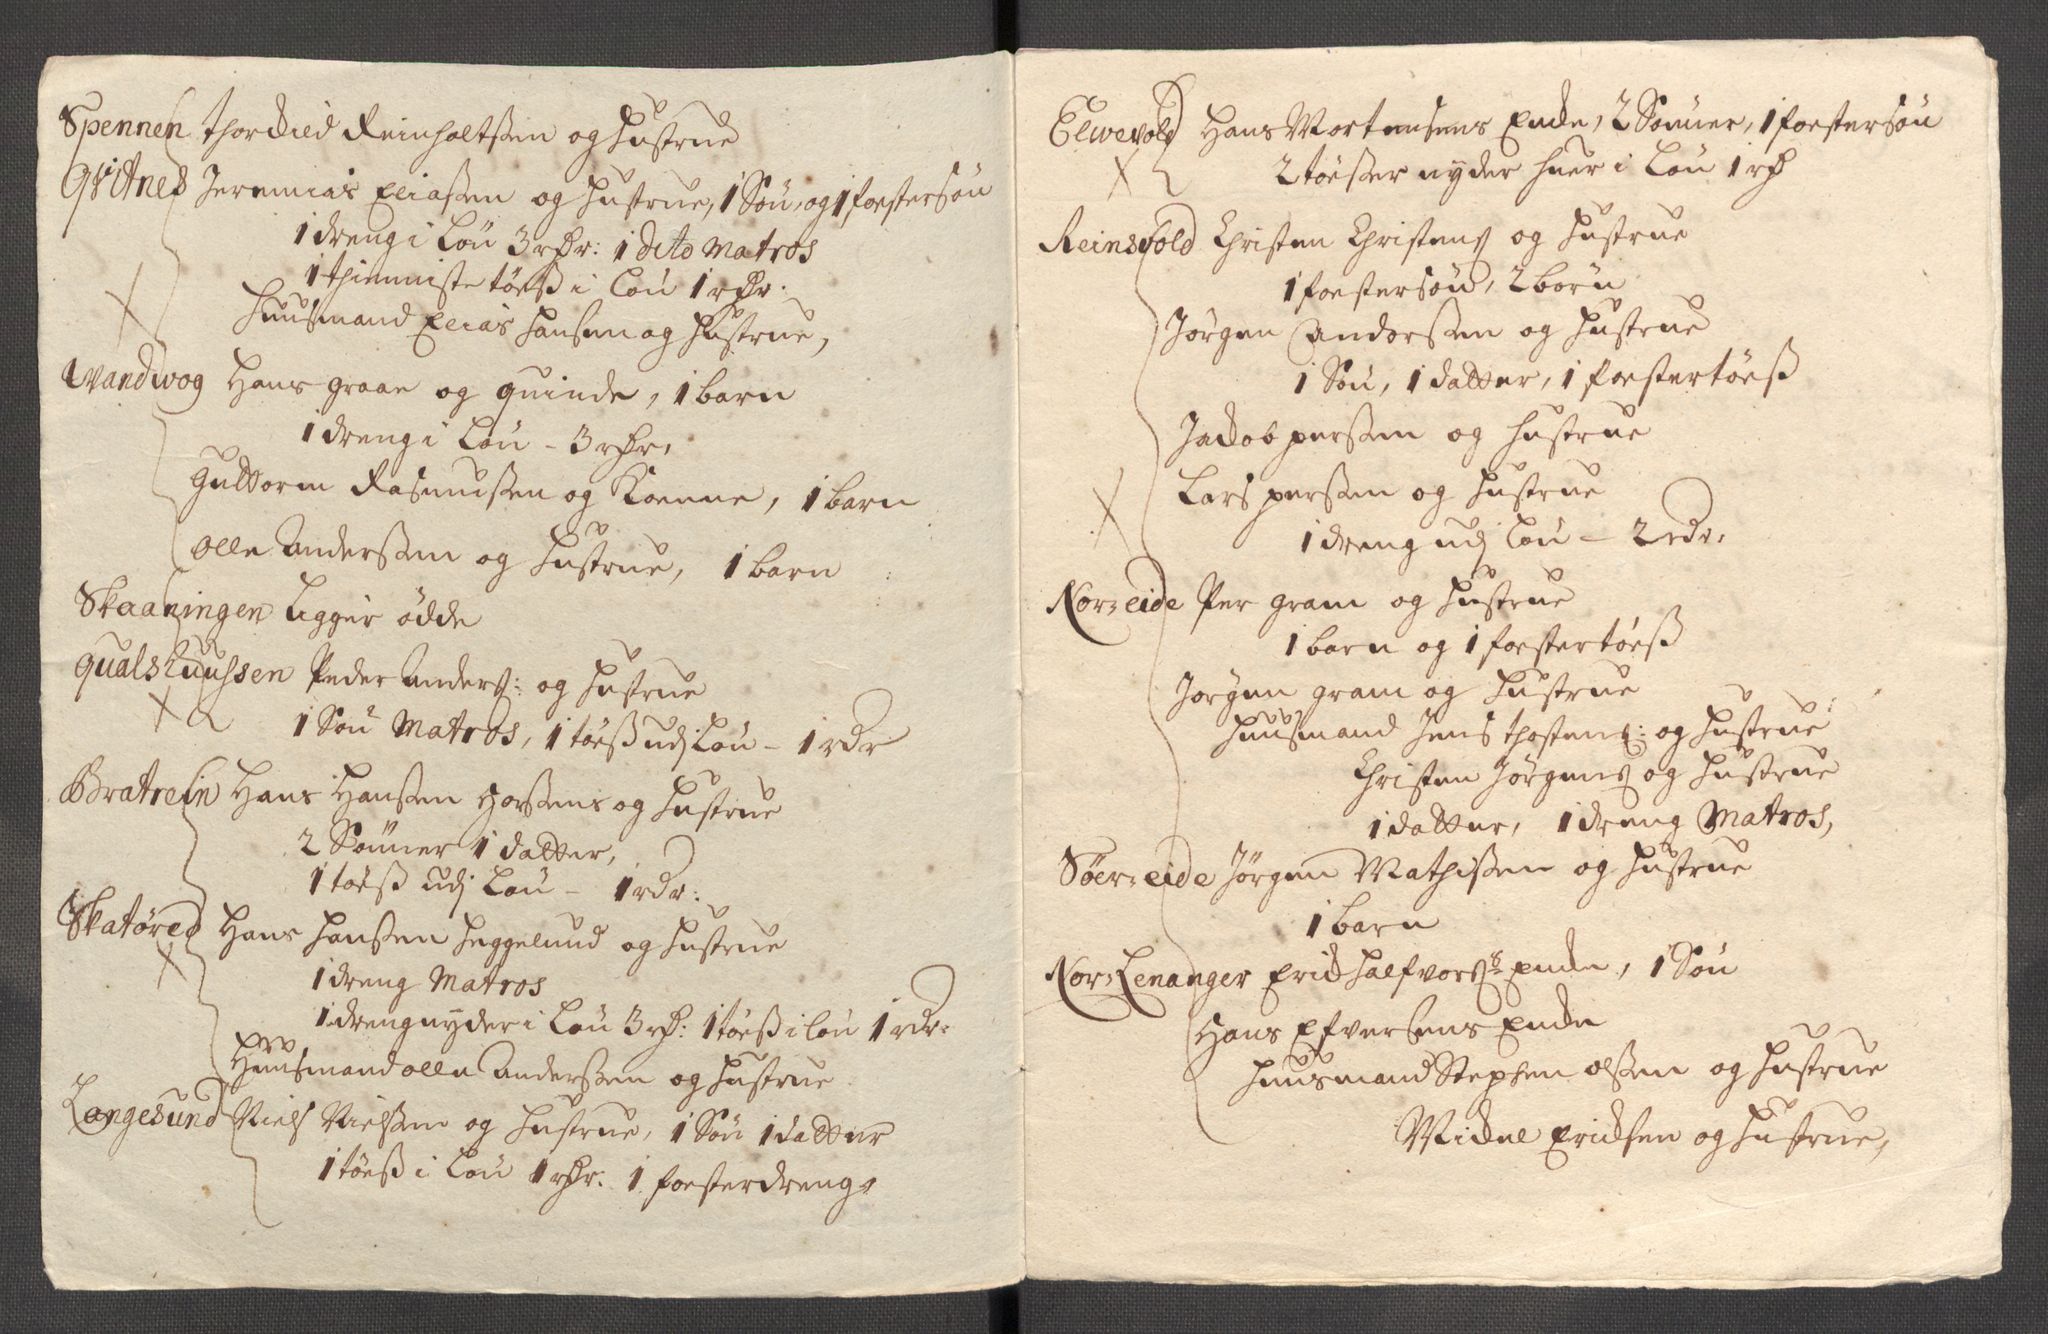 Spennen Thorchild Reinholtsen og Hustrue
Qvitnes Jeremias Eliasen og Hustrue, 1 Søn, og 1 foestersøn
1 dreng i Løn 3 rdr: 1 dito Matros
1 thienniste töes i Løn 1 rdr:
Huusmand Elias Hansen og Hustrue,
Wandwog Hans graae og quinde, 1 barn
1 dreng i Løn - 3 rdr,
Guttorm Rasmussen og Koenne, 1 barn
Olle Anderssen og Hustrue, 1 barn
Skaaningen ligger ödde
Qualshuussen Peder Anders: og Hustrue
1 Søn Matros, 1 töes udj Løn - 1 rdr
Bratrein Hans Hanssen og Hustrue
2 Sönner 1 datter,
1 töes udj Løn - 1 rdr:
Skatöred Hans Hanssen Heggelund og Hustrue
1 dreng Matros
1 dreng nyder i Løn 3 rd: 1 töes i løn 1 rdr.
Huusmand Olle Anderssen og Hustrue
Langesund Niels Nielssen og Hustrue, 1 Søn 1 datter
1 töes i Løn 1 rdr: 1 foesterdreng.
Elwevold Hans Mortensens Encke, 2 Sönner, 1 foestersøn
2 töeser nyder huer i Løn 1 rd
Reinsvold Christen Christens og Hustrue
1 foestersøn, 2 börn
Jörgen Anderssen og Hustrue
1 Søn, 1 datter, 1 foestertöes
Jacob perssen og Hustrue
Lars perssen og Hustrue
1 dreng udj Løn - 2 rdr.
Nor=eide Per gram og Hustrue
1 barn og 1 foestertöes
Jörgen gram og Hustrue
Huusmand Jens Thostens: og Hustrue
Christen Jörgens og Hustrue
1 datter, 1 dreng Matros,
Söer=eide Jörgen Mathissen og Hustrue
1 barn
Nor=Lenanger Erich Halfvors: Encke, 1 Søn
Hans Efversens Encke
Huusmand Stephen olssen og Hustrue
Michel Erichsen og Hustrue,